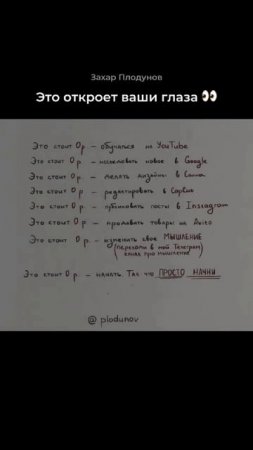 Захар Плодунов
Это откроет ваши глаза 👀
Это стоит 0 р. – обучаться на YouTube
Это стоит 0 р. – исследовать новое в Google
Это стоит 0 р. – делать дизайны в Canva
Это стоит 0 р. – редактировать в CapCut
Это стоит 0 р. – публиковать посты в Instagram
Это стоит 0 р. – продавать товары на Avito
Это стоит 0 р. – изменить своё МЫШЛЕНИЕ
(переходи в мой Телеграм
канал про мышление)
Это стоит 0 р. – начать. Так что ПРОСТО НАЧНИ
@ plodunov